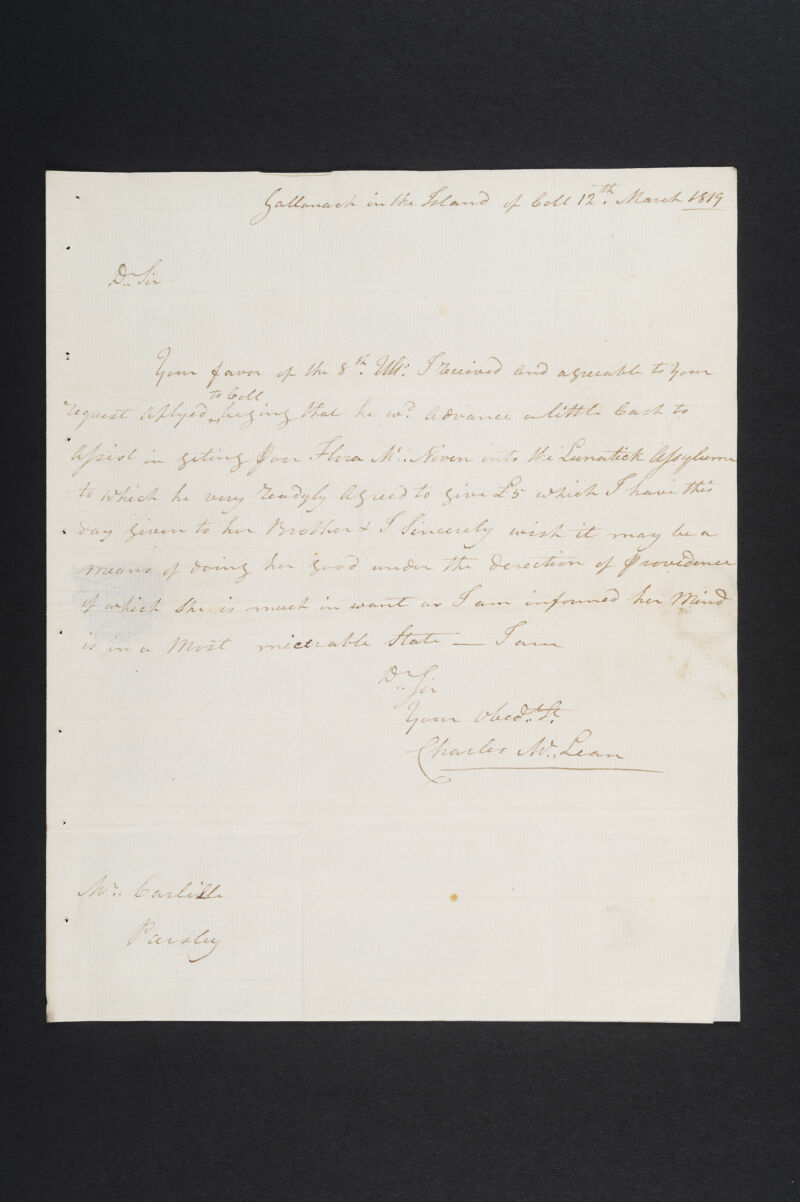 Gallanach in the Island of Coll 12th. March 1819
Dr. Sir
Your favor of the 8th. Ulto. I received and agreeable to your
to Coll
request Applyed begging that he wd. advance a little Cash to
Assist in geting poor Flora Mc. Niven into the Lunatick Assylume
to which he very readyly agreed to give £5 which I have this
day given to her Brother & I Sincerely wish it may be a
means of doing her good under the derection of Providence
of which She is much in want as I am informed her Mind
is in a Most micerable State — I am
Dr. Sir
Your obedt. St.
Charles Mc. Lean
Mr. Carlille
Paisley